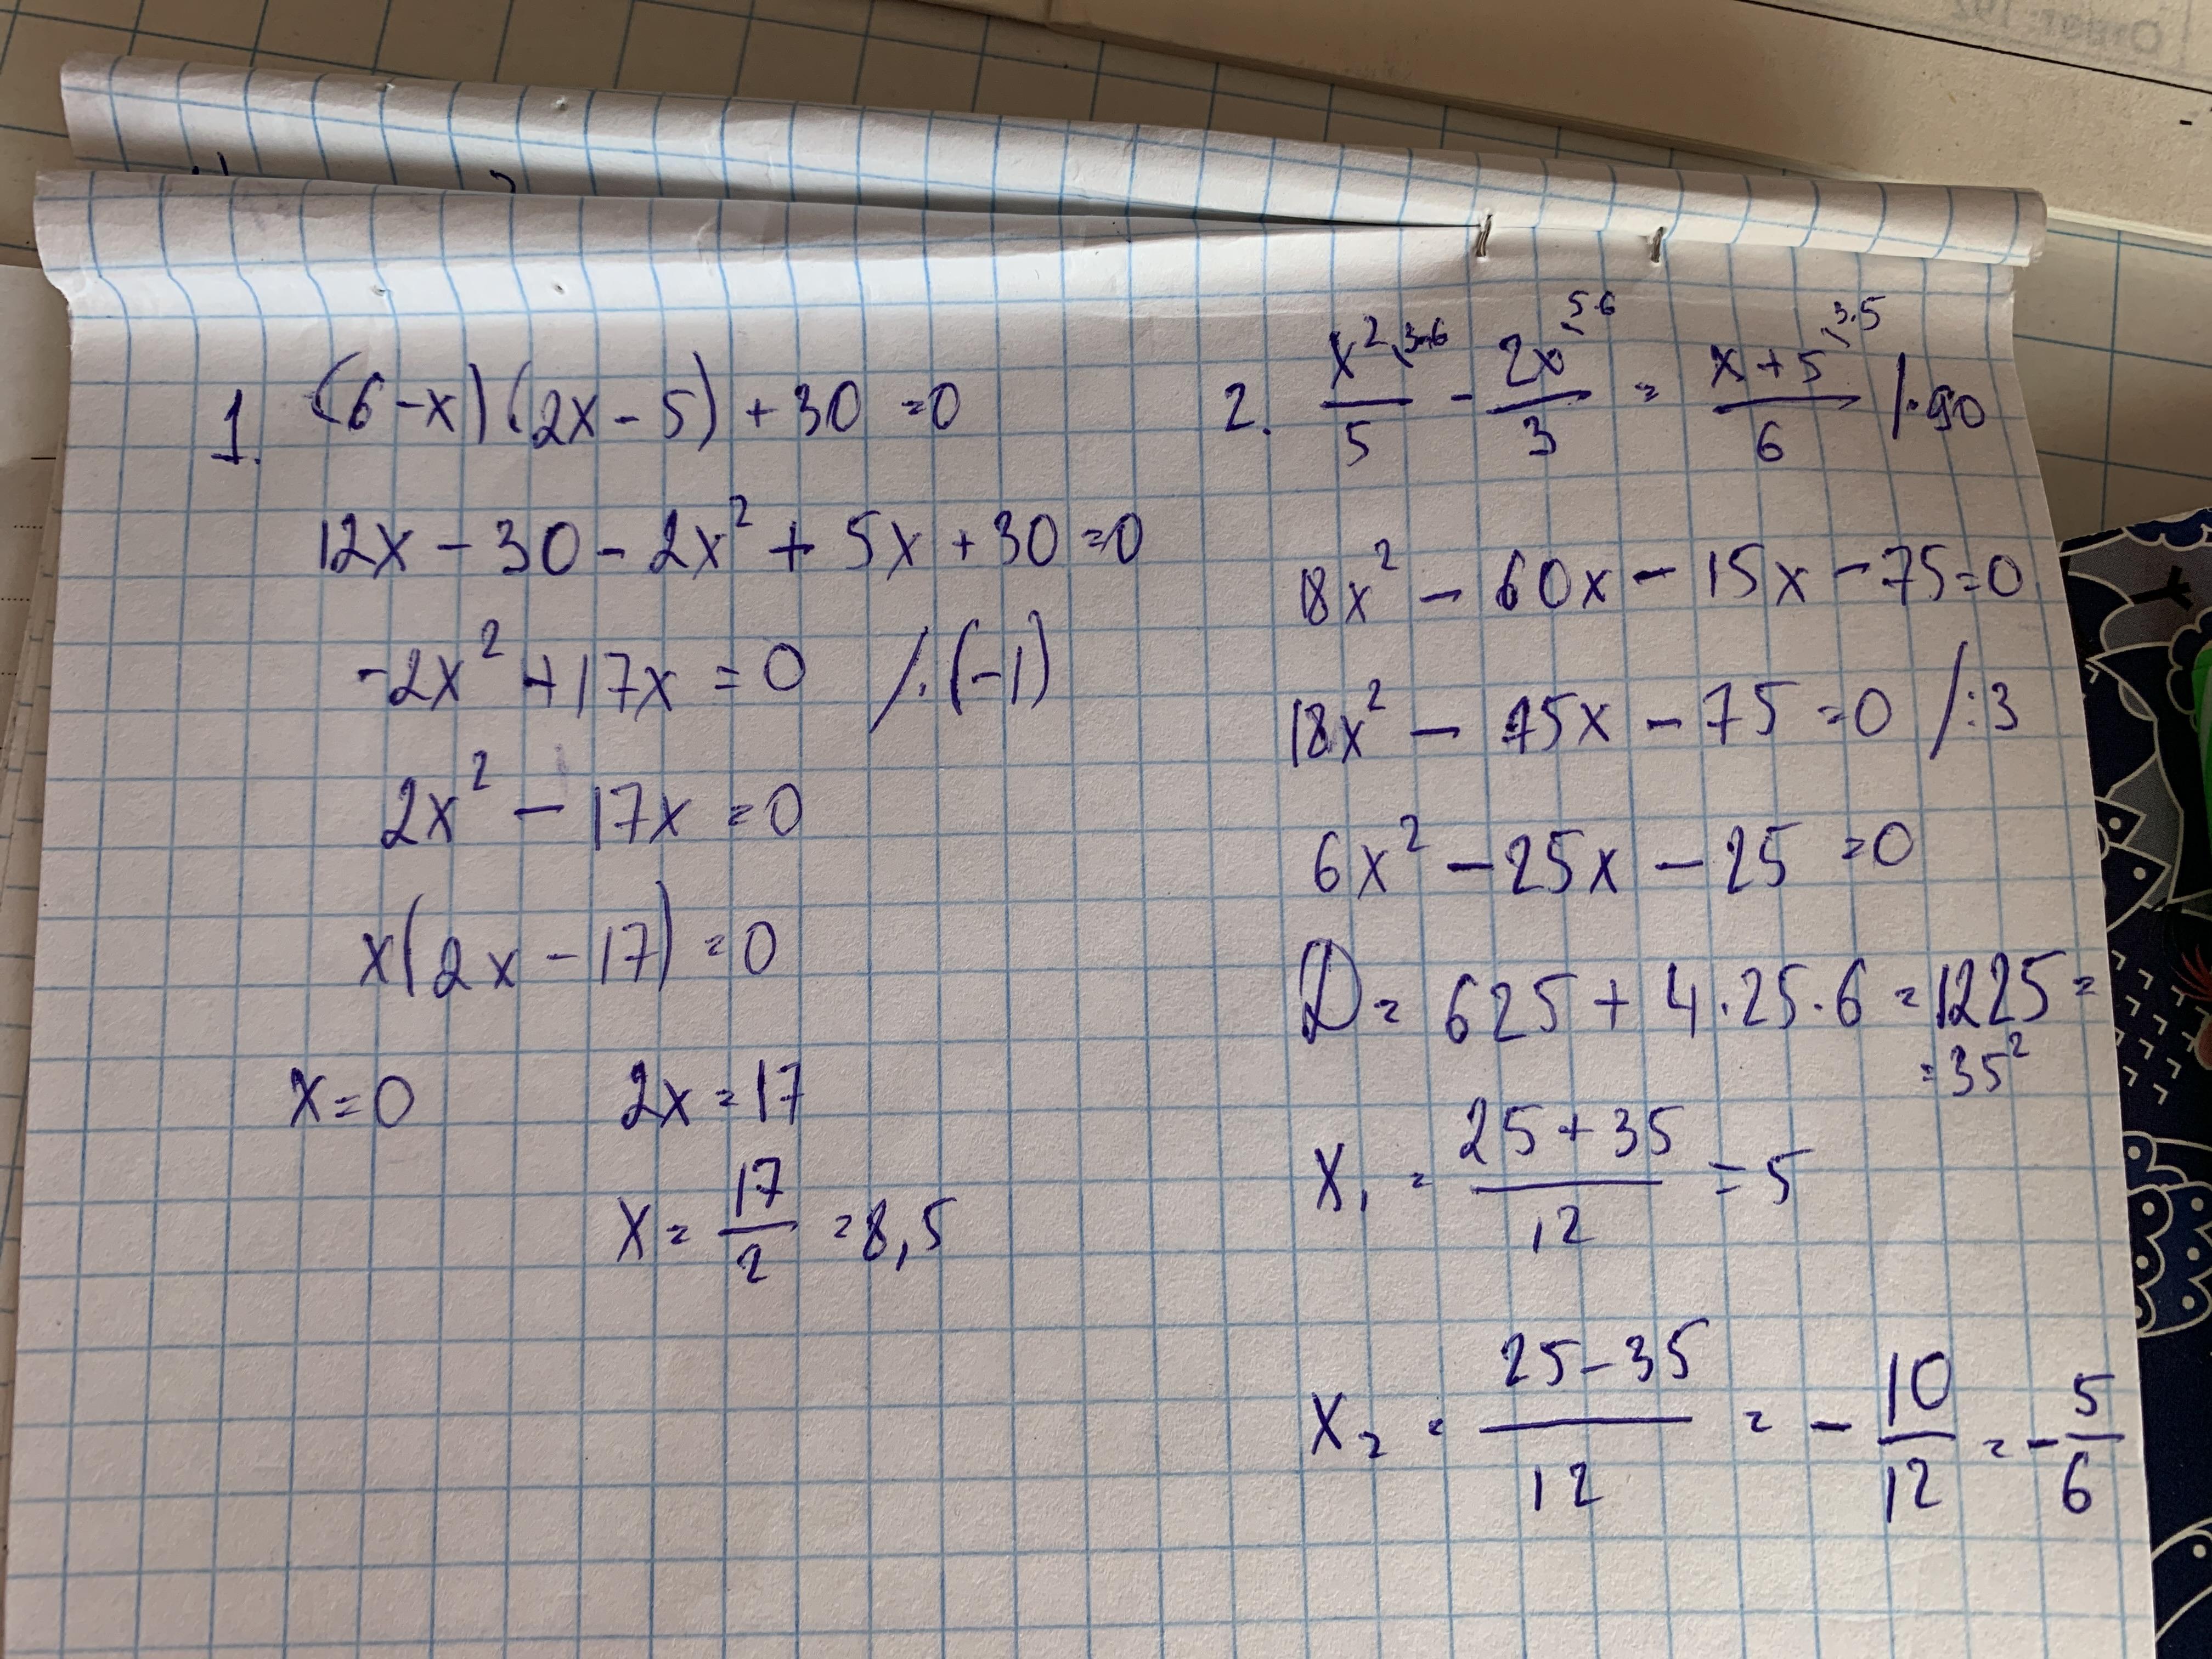 1. (6-x)(2x-5)+30=0
12x-30-2x²+5x+30=0
-2x²+17x=0 /·(-1)
2x²-17x=0
x(2x-17)=0
x=0 2x=17
x=17/2=8,5
2. x²/5 \3·6 - 2x/3 \5·6 = x+5/6 \3·5 /·90
18x²-60x-15x-75=0
18x²-75x-75=0 /:3
6x²-25x-25=0
D=625+4·25·6=1225=
=35²
x₁=25+35/12=5
x₂=25-35/12=-10/12=-5/6